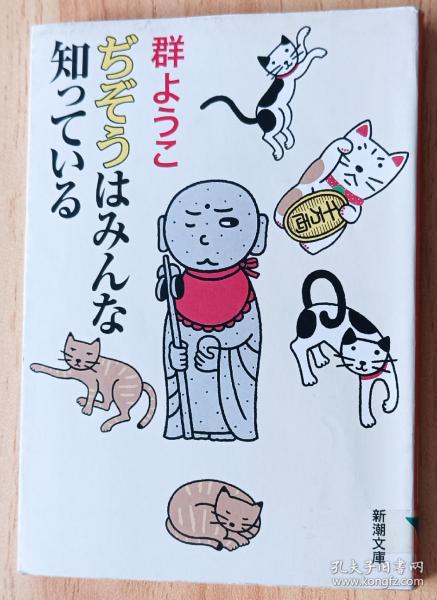 群ようこ
ぢぞうはみんな
知っている
十万両
新潮文庫
孔夫子旧书网
www.kongfz.com